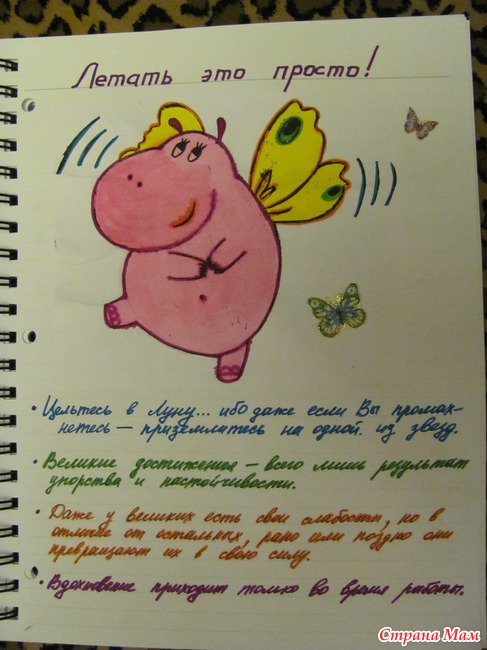 Летать это просто!
• Цельтесь в Луну... ибо даже если Вы промах-
нетесь — приземлитесь на одной из звезд.
• Великие достижения — всего лишь результат
упорства и настойчивости.
• Даже у великих есть свои слабости, но в
отличие от остальных, рано или поздно они
превращают их в свою силу.
• Вдохновение приходит только во время работы.
Страна Мам